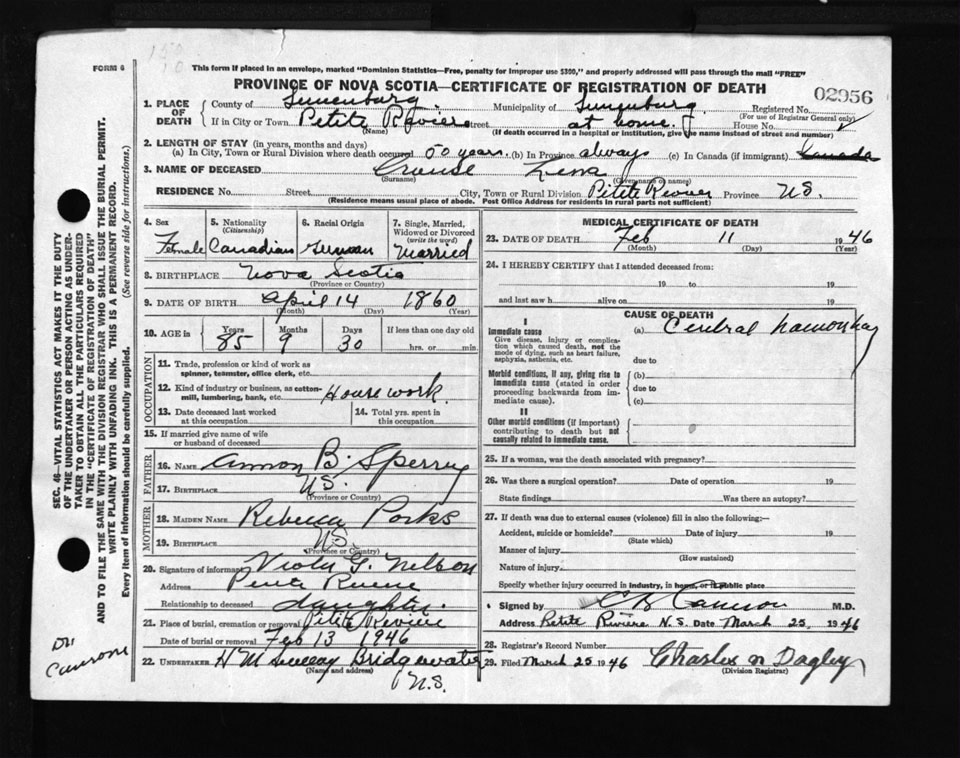 FORM 6
This form if placed in an envelope, marked "Dominion Statistics—Free, penalty for improper use $300," and properly addressed will pass through the mail "FREE"
PROVINCE OF NOVA SCOTIA—CERTIFICATE OF REGISTRATION OF DEATH
02956
1. PLACE OF DEATH
County of Lunenburg Municipality of Lunenburg Registered No.
(For use of Registrar General only)
If in City or Town Petite Riviere street at home House No.
(Name) (If death occurred in a hospital or institution, give its name instead of street and number)
2. LENGTH OF STAY (in years, months and days)
(a) In City, Town or Rural Division where death occurred 60 years (b) In Province always (c) In Canada (if immigrant) Canada
3. NAME OF DECEASED Crouse Lena
(Surname) (Given name or names)
RESIDENCE No. Street City, Town or Rural Division Petite Riviere Province N.S.
(Residence means usual place of abode. Post Office Address for residents in rural parts not sufficient)
4. Sex Female
5. Nationality (Citizenship) Canadian
6. Racial Origin German
7. Single, Married, Widowed or Divorced (write the word) Married
8. BIRTHPLACE Nova Scotia
(Province or Country)
9. DATE OF BIRTH April 14 1860
(Month) (Day) (Year)
10. AGE in Years 85 Months 9 Days 30 If less than one day old
hrs. or min.
OCCUPATION
11. Trade, profession or kind of work as spinner, teamster, office clerk, etc.
12. Kind of industry or business, as cotton-mill, lumbering, bank, etc. House work
13. Date deceased last worked at this occupation
14. Total yrs. spent in this occupation
15. If married give name of wife or husband of deceased
FATHER
16. NAME Amon B. Sperry
17. BIRTHPLACE N.S.
(Province or Country)
MOTHER
18. MAIDEN NAME Rebecca Parks
19. BIRTHPLACE N.S.
(Province or Country)
20. Signature of informant Viola G. Nelson
Address Petite Riviere
Relationship to deceased daughter
21. Place of burial, cremation or removal Petite Riviere
Date of burial or removal Feb 13 1946
22. UNDERTAKER H M Bridgewater
(Name and address)
N.S.
MEDICAL CERTIFICATE OF DEATH
23. DATE OF DEATH Feb 11 1946
(Month) (Day) (Year)
24. I HEREBY CERTIFY that I attended deceased from:
19 to 19
and last saw h alive on 19
CAUSE OF DEATH
I
Immediate cause (a) Cerebral
Give disease, injury or complication which caused death, not the mode of dying, such as heart failure, asphyxia, asthenia, etc.
due to
Morbid conditions, if any, giving rise to immediate cause (stated in order proceeding backwards from immediate cause).
(b)
due to
(c)
II
Other morbid conditions (if important) contributing to death but not causally related to immediate cause.
25. If a woman, was the death associated with pregnancy?
26. Was there a surgical operation? Date of operation 19
State findings Was there an autopsy?
27. If death was due to external causes (violence) fill in also the following:—
Accident, suicide or homicide? Date of injury 19
(State which)
Manner of injury
(How sustained)
Nature of injury
Specify whether injury occurred in industry, in home, or in public place
Signed by Cameron M.D.
Address Petite Rivière N.S. Date March 25, 1946
28. Registrar's Record Number
29. Filed March 25 1946 Charles N Dagley
(Division Registrar)
SEC. 46—VITAL STATISTICS ACT MAKES IT THE DUTY
OF THE UNDERTAKER OR PERSON ACTING AS UNDERTAKER TO OBTAIN ALL THE PARTICULARS REQUIRED
IN THE "CERTIFICATE OF REGISTRATION OF DEATH"
AND TO FILE THE SAME WITH THE DIVISION REGISTRAR WHO SHALL ISSUE THE BURIAL PERMIT.
WRITE PLAINLY WITH UNFADING INK. THIS IS A PERMANENT RECORD.
Every item of information should be carefully supplied. (See reverse side for instructions.)